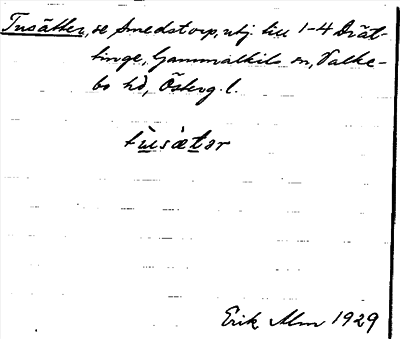 Tusätter, se Smedstorp, utj. till 1-4 Drät-
tinge, Gammalkils sn, Valke-
bo hd, Österg. l.
tùsæ̀tər
Erik Alm 1929